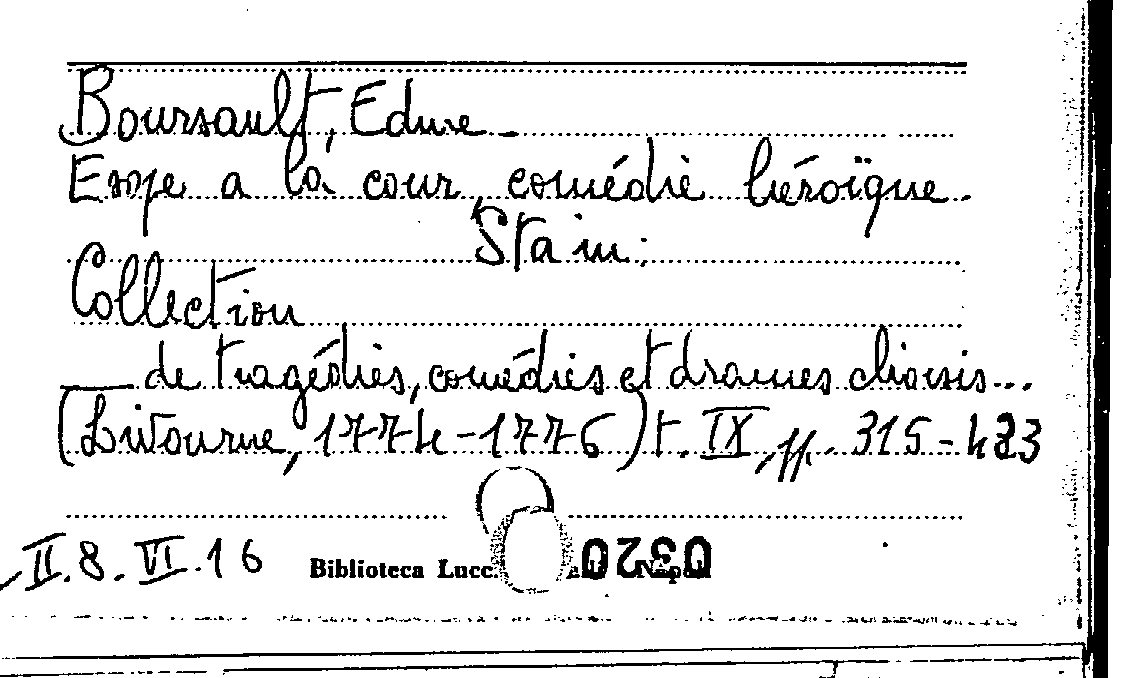 Boursault, Edme -
Esope a la cour, comédie héroïque.
Sta in:
Collection
de tragédies, comédies et drames choisis...
(Livourne, 1774-1776) t. IX, pp. 315-423
II.8.VI.16 Biblioteca Lucc. 0320